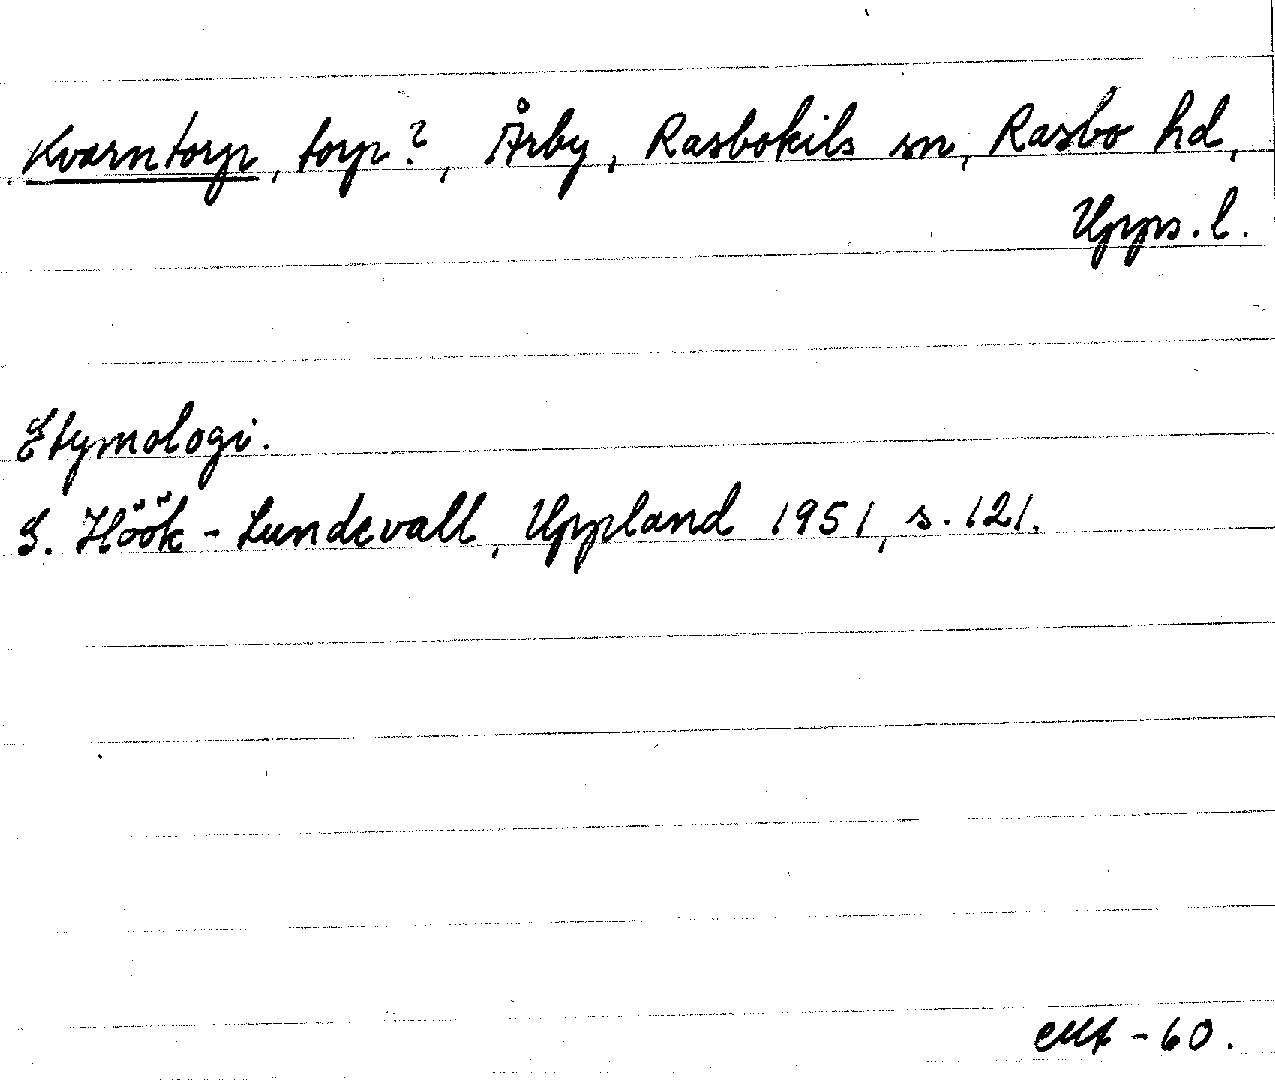 Kvarntorp, torp?, Årby, Rasbokils sn, Rasbo hd,
Upps. l.
Etymologi.
S. Höök - Lundevall, Uppland 1951, s. 121.
-60.